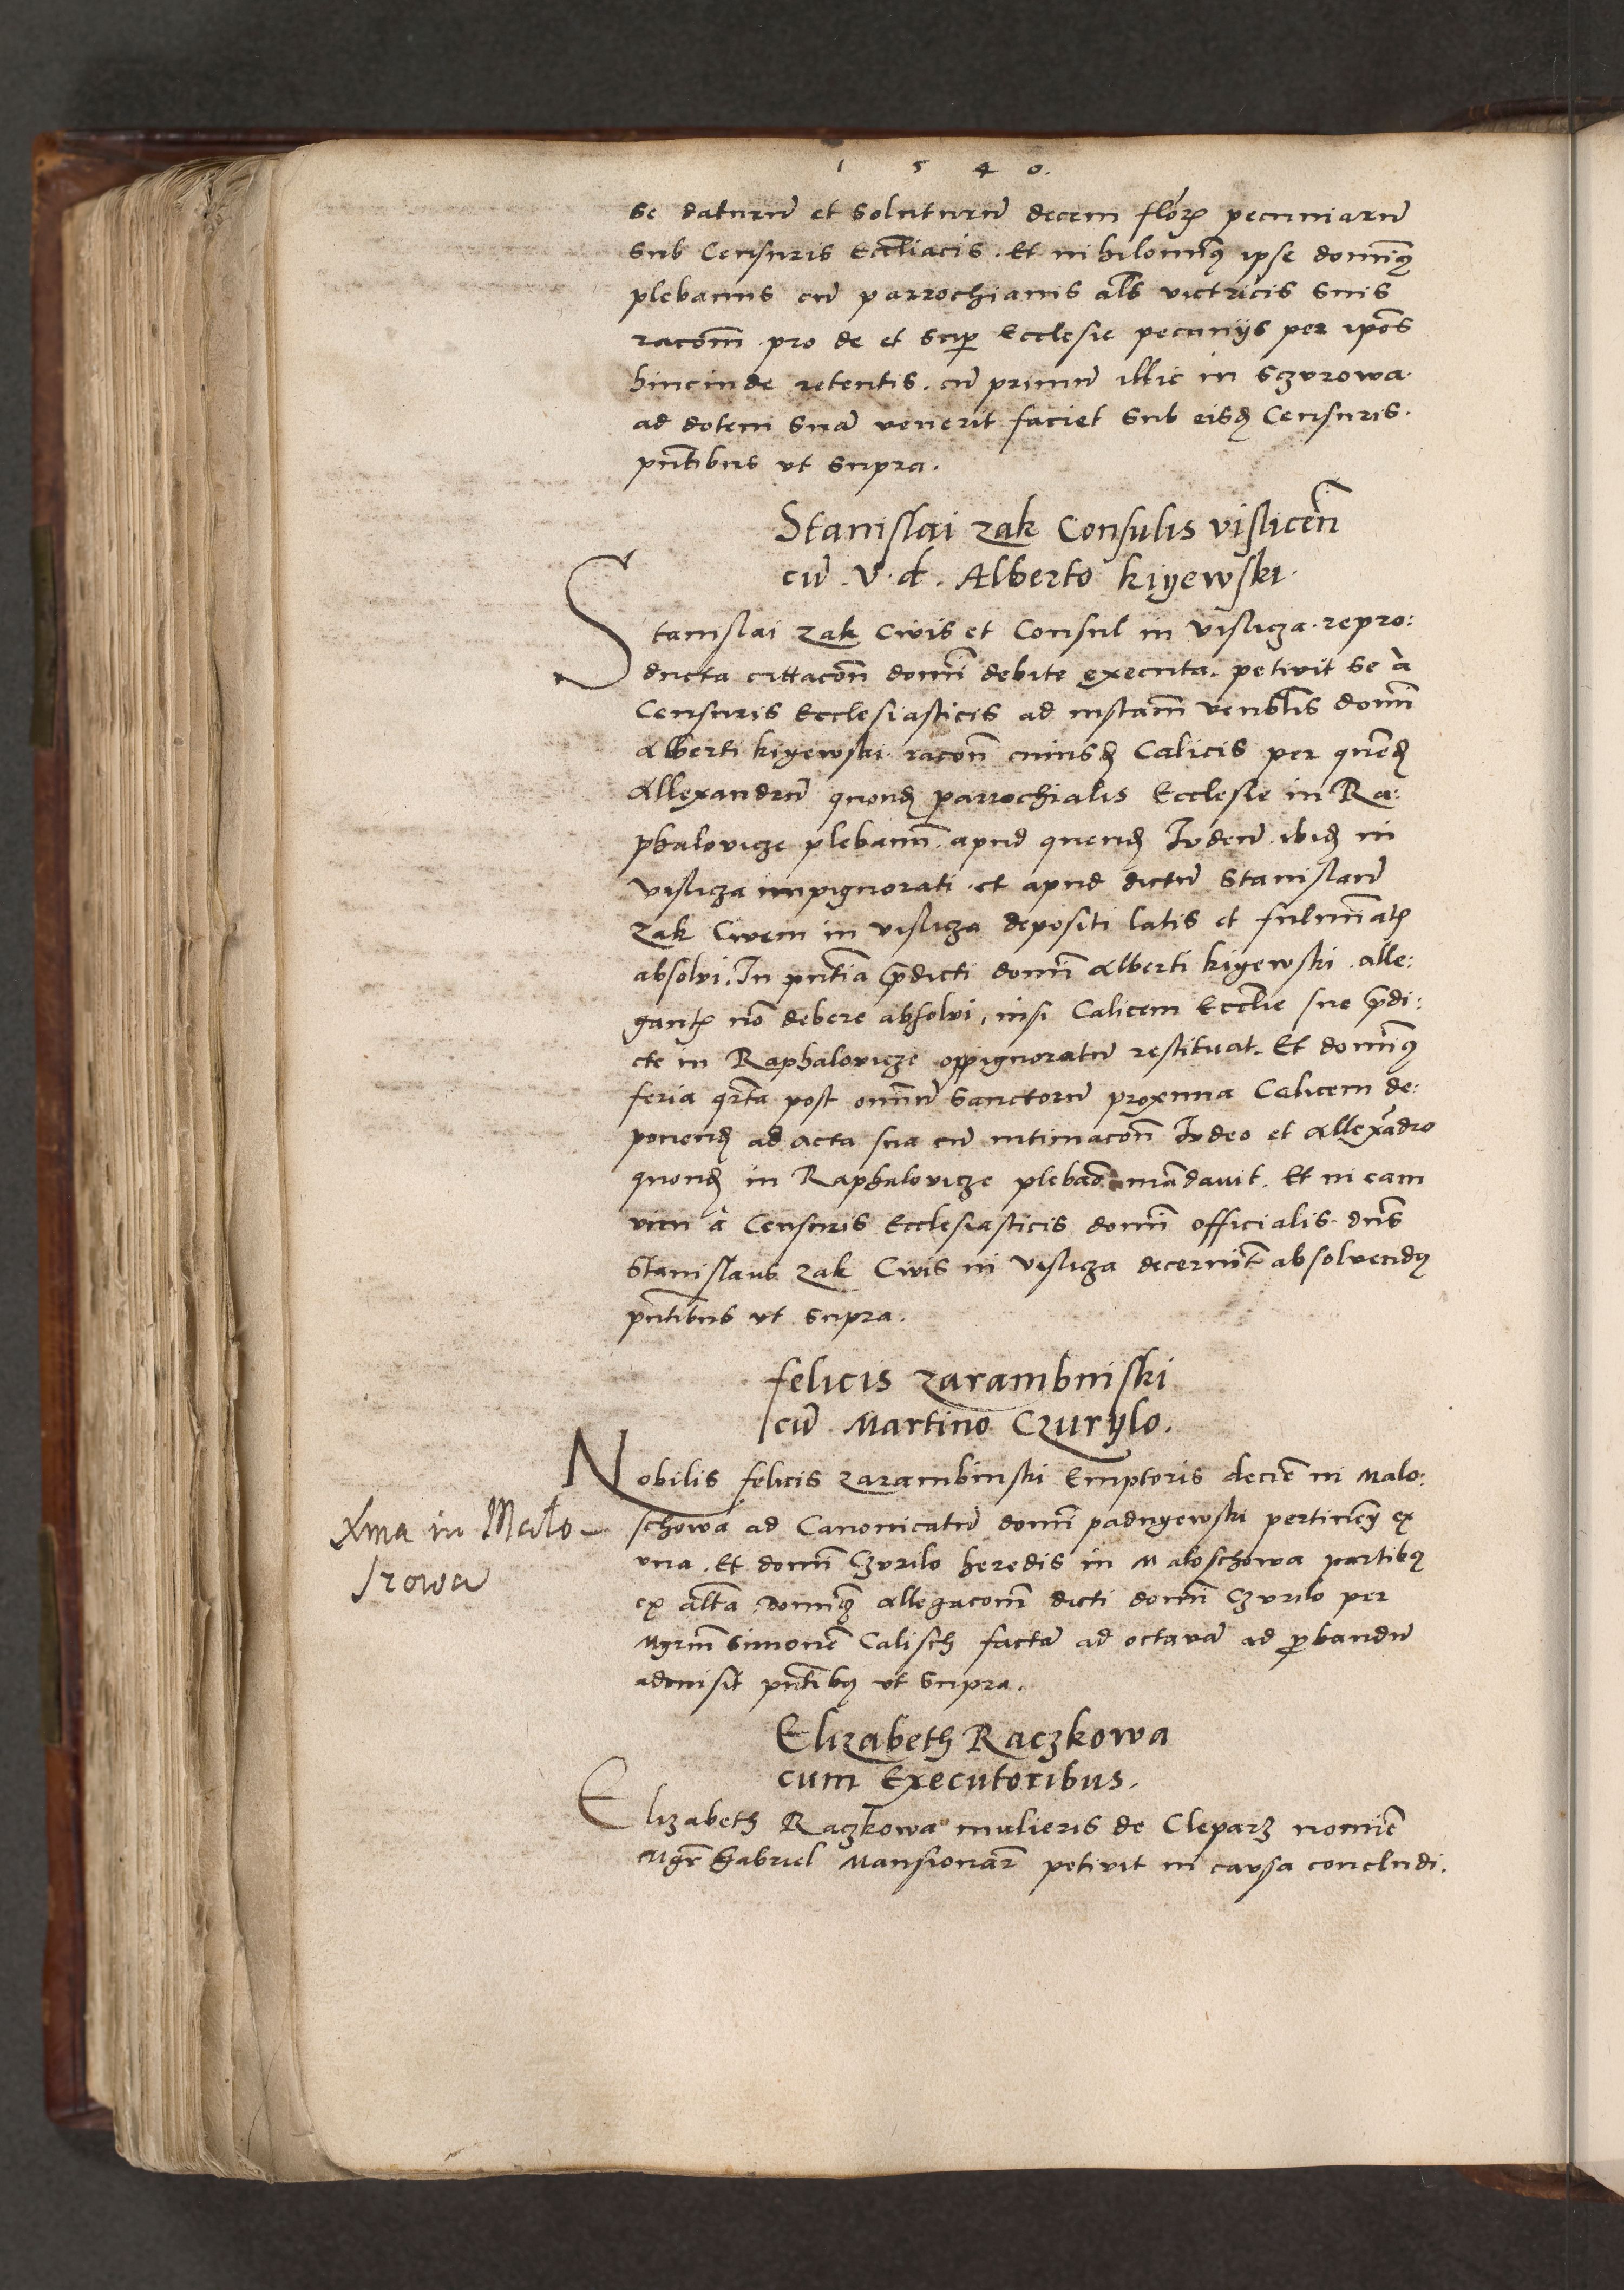 1 5 4 0.
se daturū et soluturū decem flor̄ pecuniarū
sub Censuris Eccl̄iacis. Et nihilominꝰ ipse dominꝰ
plebanus cū parrochianis al̄s victricis suis
racōm̄ pro de et sup̄ Ecclesie pecunijs per ip̄os
hincinde retentis. cū primū illic in Sczvrowa.
ad dotem suā venerit faciet sub eisd̄ Censuris.
pn̄tibus vt supra.
Stanislai zak Consulis vislicen̄
cū. V. d. Alberto kiyewski.
Stanislai zak Civis et Consul in Vislicza. repro:
ducta cittacōn̄ domī debite executa. petivit se a
Censuris Ecclesiasticis ad instan̄ venbl̄is domī
Alberti kiyewski racōn̄ cuiusd̄ Calicis per quēd̄
Allexandrū quond̄ parrochialis Ecclesie in Ra:
phalovicze plebanū. apud quend̄ Iudeū. ibid̄ in
Vislicza impignorati. et apud dictū Stanislaū
Zak Civem in vislicza depositi latis et fulminat̄
absolvi. In pn̄tia p̄dicti domī Alberti kiyewski. alle:
gant̄ nō debere absolvi, nisi Calicem Eccl̄ie sue p̄di:
cte in Raphalovicze oppignoratū restituat. Et dominꝰ
feria qr̄ta post omniū Sanctorū proxima Calicem de:
ponend̄ ad acta sua cū intimacōn̄ Iudeo et Allexādro
quond̄ in Raphalovicze plebāo mādavit. Et in eam
vim a Censuris Ecclesiasticis domī officialis. dn̄s
Stanislaus zak Civis in Vislicza decernit̄ absolvendꝰ
pn̄tibus vt supra.
felicis zarambniski
cū Martino Czurylo.
Nobilis felicis zarambinski Emptoris decīe in Malo:
schowa ad Canonicatū domī padnyewski pertinen̄ ex
vna. Et domī Czvrilo heredis in Maloschowa partibꝰ
ex alt̄a. Dominꝰ allegacōm̄ dicti domī Czvrilo per
Mgrm̄ Simonē Calisch factā ad octavā ad ꝓbandū
admisit pn̄tibꝰ vt supra.
Xma in Malo-
szowa
Elizabeth Raczkowa
cum Executoribus.
Elizabeth Raczkowa mulieris de Cleparz nomīe
Mgr̄ Gabriel Mansionar̄ petivit in causa concludi.